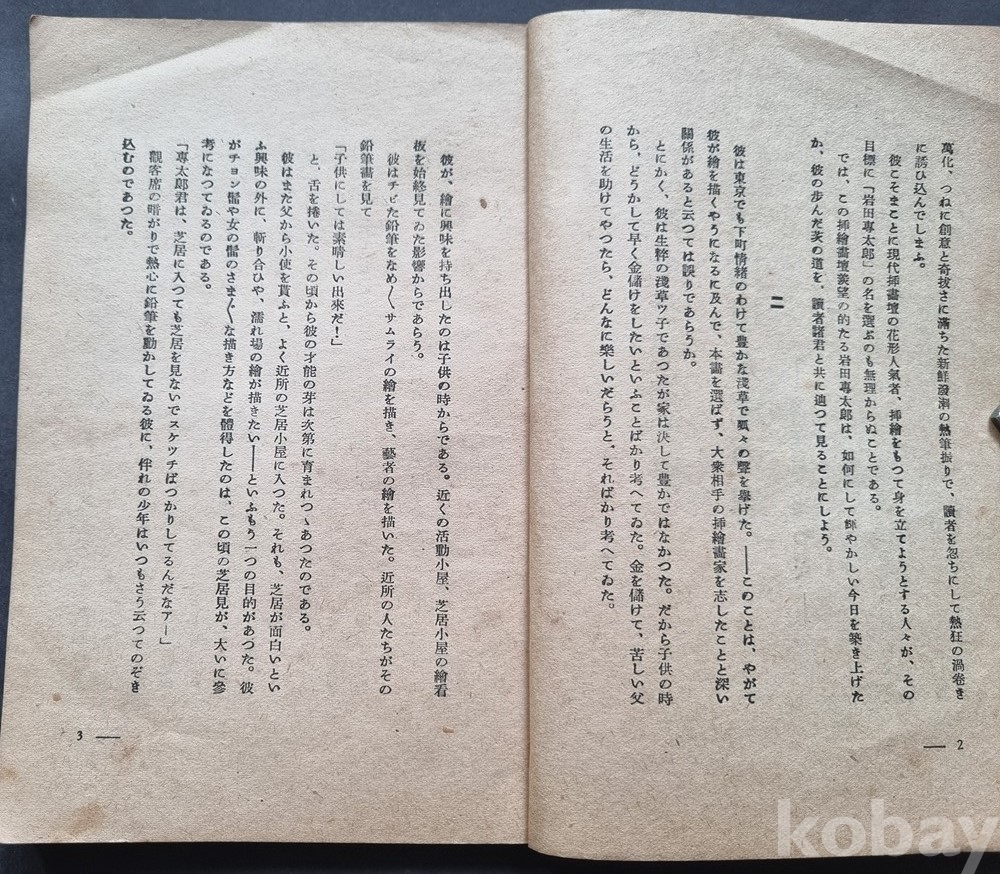 萬化、つねに創意と奇拔さに滿ちた新鮮潑溂の熱筆振りで、讀者を忽ちにして熱狂の渦卷き
に誘ひ込んでしまふ。
彼こそまことに現代挿畫壇の花形人氣者、挿繪をもつて身を立てようとする人々が、その
目標に「岩田專太郎」の名を選ぶのも無理からぬことである。
では、この挿繪畫壇羨望の的たる岩田專太郎は、如何にして輝やかしい今日を築き上げた
か、彼の步んだ茨の道を、讀者諸君と共に辿つて見ることにしよう。
二
彼は東京でも下町情緖のわけて豊かな淺草で呱々の聲を擧げた。――このことは、やがて
彼が繪を描くやうになるに及んで、本畫を選ばず、大衆相手の挿繪畫家を志したことと深い
關係があると云つては誤りであらうか。
とにかく、彼は生粹の淺草ツ子であつたが家は決して豊かではなかつた。だから子供の時
から、どうかして早く金儲けをしたいといふことばかり考へてゐた。金を儲けて、苦しい父
の生活を助けてやつたら、どんなに樂しいだらうと、そればかり考へてゐた。
2
彼が、繪に興味を持ち出したのは子供の時からである。近くの活動小屋、芝居小屋の繪看
板を始終見てゐた影響からであらう。
彼はチビた鉛筆をなめ〳〵サムライの繪を描き、藝者の繪を描いた。近所の人たちがその
鉛筆畫を見て
「子供にしては素晴しい出來だ！」
と、舌を捲いた。その頃から彼の才能の芽は次第に育まれつゝあつたのである。
彼はまた父から小使を貰ふと、よく近所の芝居小屋に入つた。それも、芝居が面白いとい
ふ興味の外に、斬り合ひや、濡れ場の繪が描きたい――といふもう一つの目的があつた。彼
がチョン髷や女の髷のさま〴〵な描き方などを體得したのは、この頃の芝居見が、大いに參
考になつてゐるのである。
「專太郎君は、芝居に入つても芝居を見ないでスケツチばつかりしてるんだなアー」
觀客席の暗がりで熱心に鉛筆を動かしてゐる彼に、伴れの少年はいつもさう云つてのぞき
込むのであつた。
3
kobay